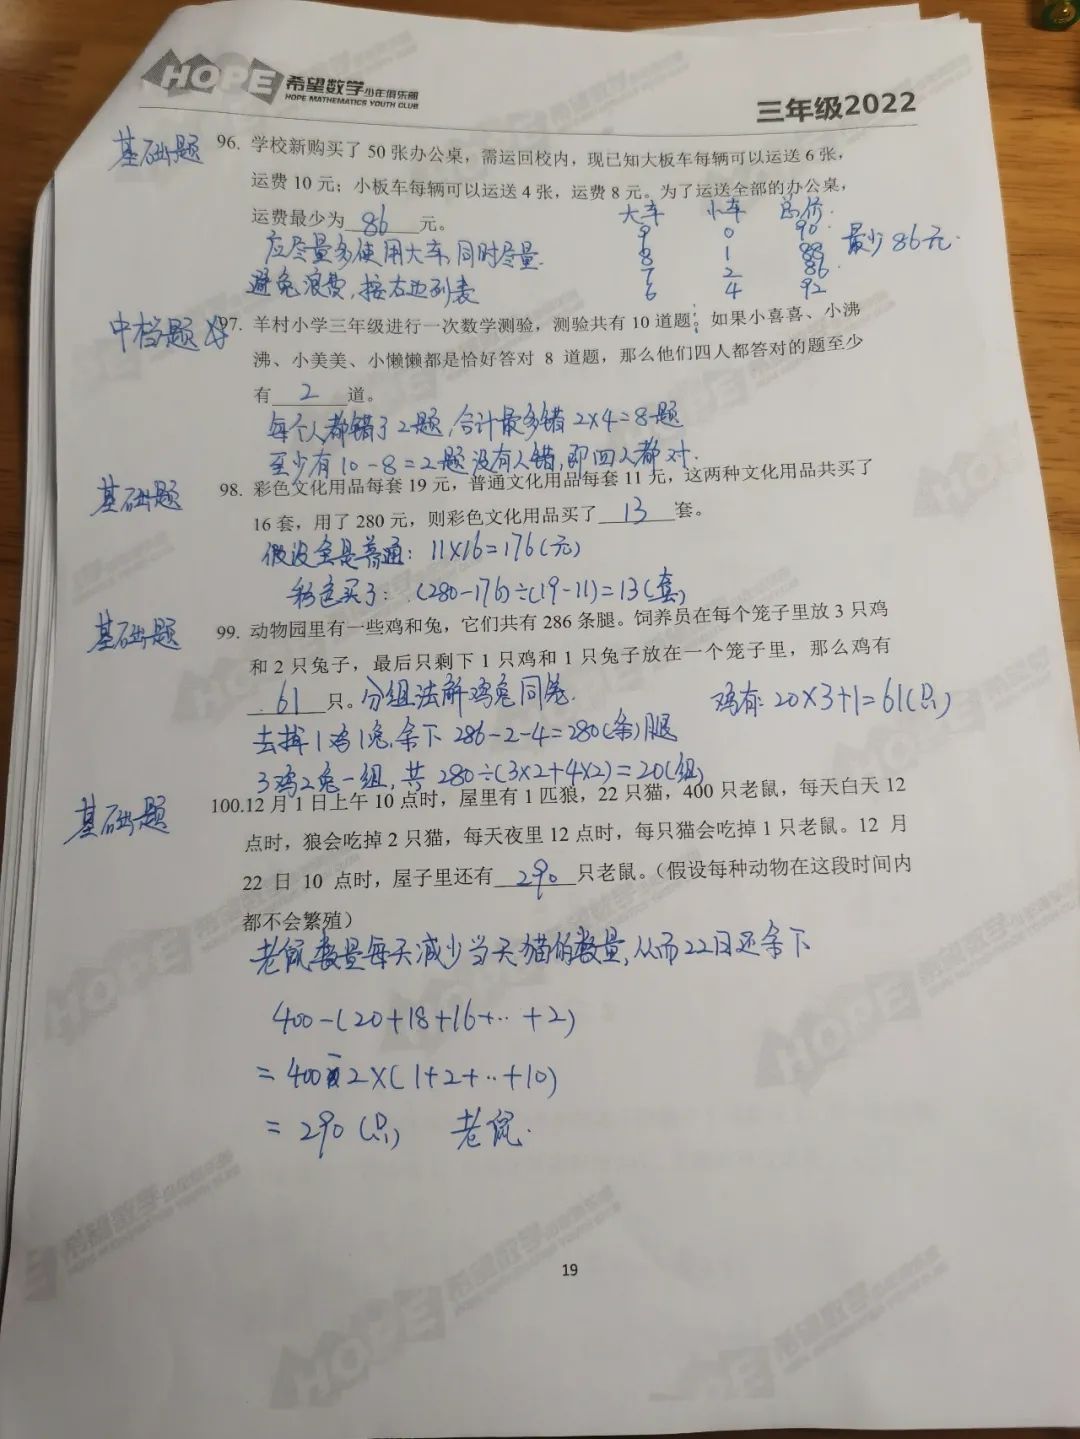 HOPE 希望数学少年俱乐部
HOPE MATHEMATICS YOUTH CLUB
三年级2022
基础题 96. 学校新购买了 50 张办公桌，需运回校内，现已知大板车每辆可以运送 6 张，
运费 10 元；小板车每辆可以运送 4 张，运费 8 元。为了运送全部的办公桌，
运费最少为 86 元。
大车 小车 总价.
9 0 90
8 1 88
7 2 86
6 4 92
最少86元.
应尽量多使用大车,同时尽量
避免浪费,按右边列表
中档题 97. 羊村小学三年级进行一次数学测验，测验共有 10 道题。如果小喜喜、小沸
沸、小美美、小懒懒都是恰好答对 8 道题，那么他们四人都答对的题至少
有 2 道。
每个人都错了2题,合计最多错 2×4=8题
至少有10-8=2题没有人错,即四人都对.
基础题 98. 彩色文化用品每套 19 元，普通文化用品每套 11 元，这两种文化用品共买了
16 套，用了 280 元，则彩色文化用品买了 13 套。
假设全是普通: 11×16=176(元)
彩色买了: (280-176)÷(19-11)=13(套)
基础题 99. 动物园里有一些鸡和兔，它们共有 286 条腿。饲养员在每个笼子里放 3 只鸡
和 2 只兔子，最后只剩下 1 只鸡和 1 只兔子放在一个笼子里，那么鸡有
61 只。分组法解鸡兔同笼.
鸡有: 20×3+1=61(只)
去掉1鸡1兔,余下 286-2-4=280(条)腿
3鸡2兔一组,共 280÷(3×2+4×2)=20(组)
基础题 100.12 月 1 日上午 10 点时，屋里有 1 匹狼，22 只猫，400 只老鼠，每天白天 12
点时，狼会吃掉 2 只猫，每天夜里 12 点时，每只猫会吃掉 1 只老鼠。12 月
22 日 10 点时，屋子里还有 290 只老鼠。（假设每种动物在这段时间内
都不会繁殖）
老鼠数量每天减少当天猫的数量,从而22日还余下
400-(20+18+16+..+2)
=400-2×(1+2+..+10)
=290(只) 老鼠.
19